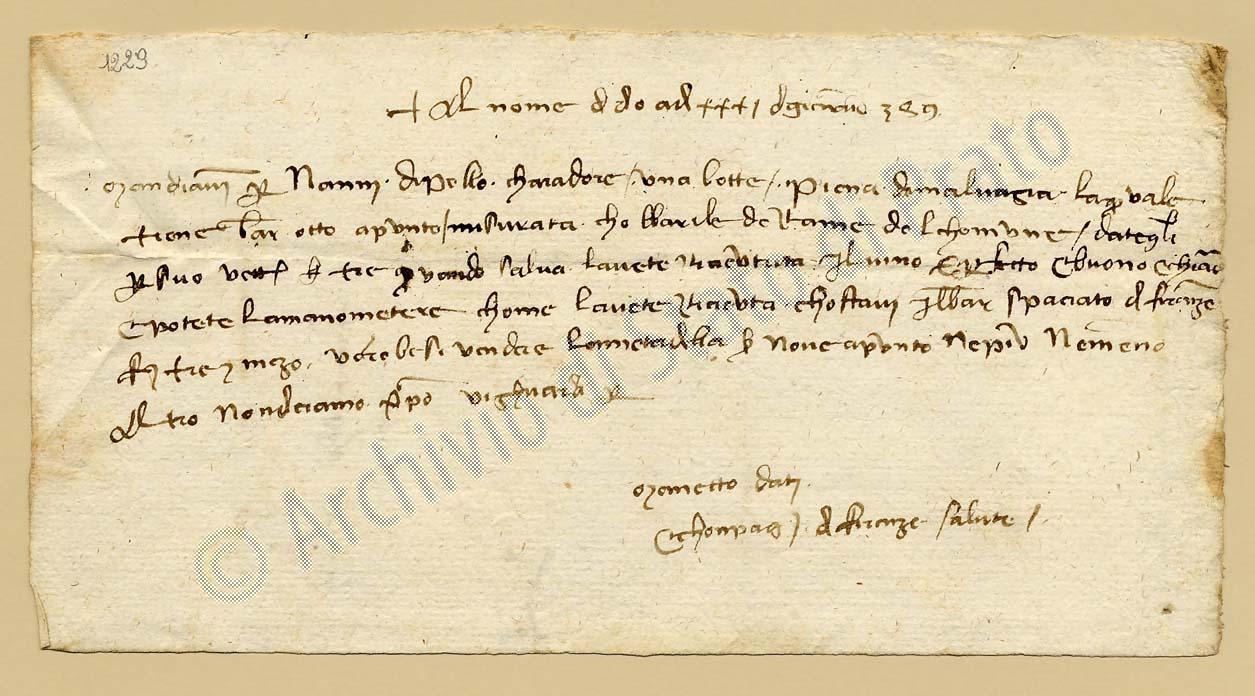 1229
+ Al nome di dio adì XXXI di gienaio 389
Mandianvi per Nanni di Pollo charadore una botte piena di malvagia la quale
tiene bar otto apunto misurata chol barile de rame del chomune dategli
per suo vett tre quando salva l'avete ricevuta il vino è perfetto e buono e chiaro
e potete la manometere chome l'avete ricievuta chostavi il bar spaciato di firenze
f tre mezo vendere la metadella nove apunto nè più nè meno
altro non diciamo per
Manetto dati
e chonpag di firenze salute
© Archivio di Stato di Prato